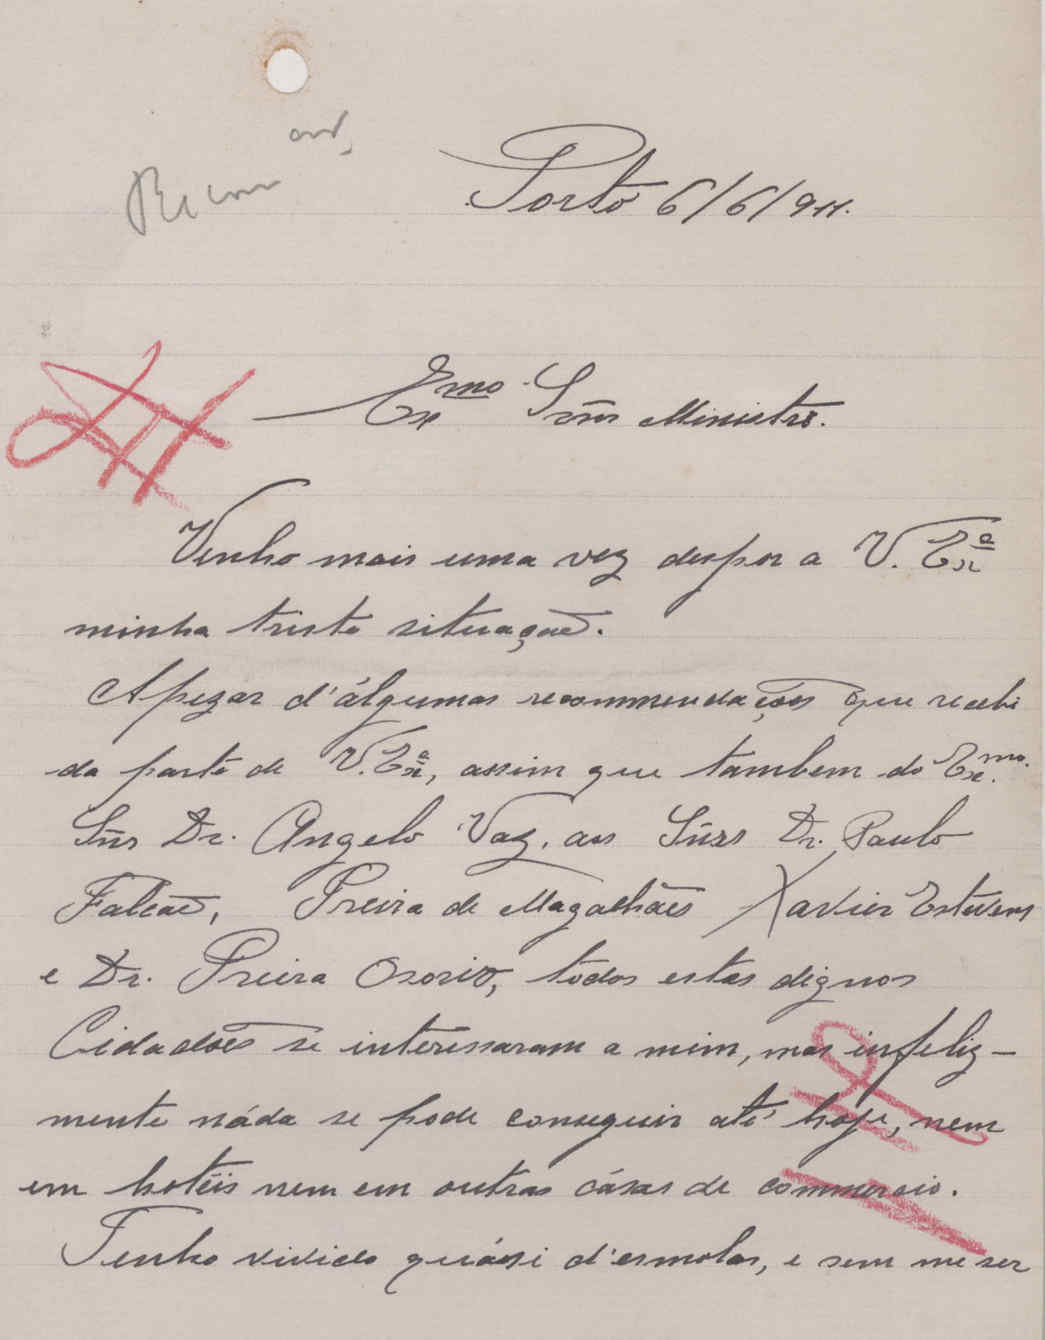 Porto 6/6/911.
Exmo Snr Ministro.
Venho mais uma vez despor a V. Exa
minha triste situação.
Apezar d'álgumas recommendações que recebi
da parte de V. Exa, assim que tambem do Exmo.
Snr Dr. Angelo Vaz, aos Snrs Dr. Paulo
Falcaõ, Preira de Magalhães Xavier Estevens
e Dr. Preira Osorio, todos estes dignos
Cidadoẽs se interessaram a mim, mas infeliz-
mente náda se pode conseguir até hoje, nem
em hotéis nem em outras cásas de commercio.
Tenho vivido quáosi d'esmolas, e sem me ser